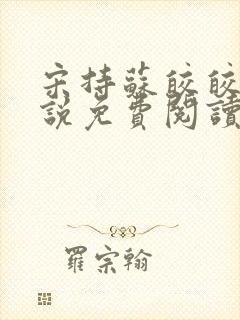 宋持蘇皎皎
說免費閱讀
羅宗翰